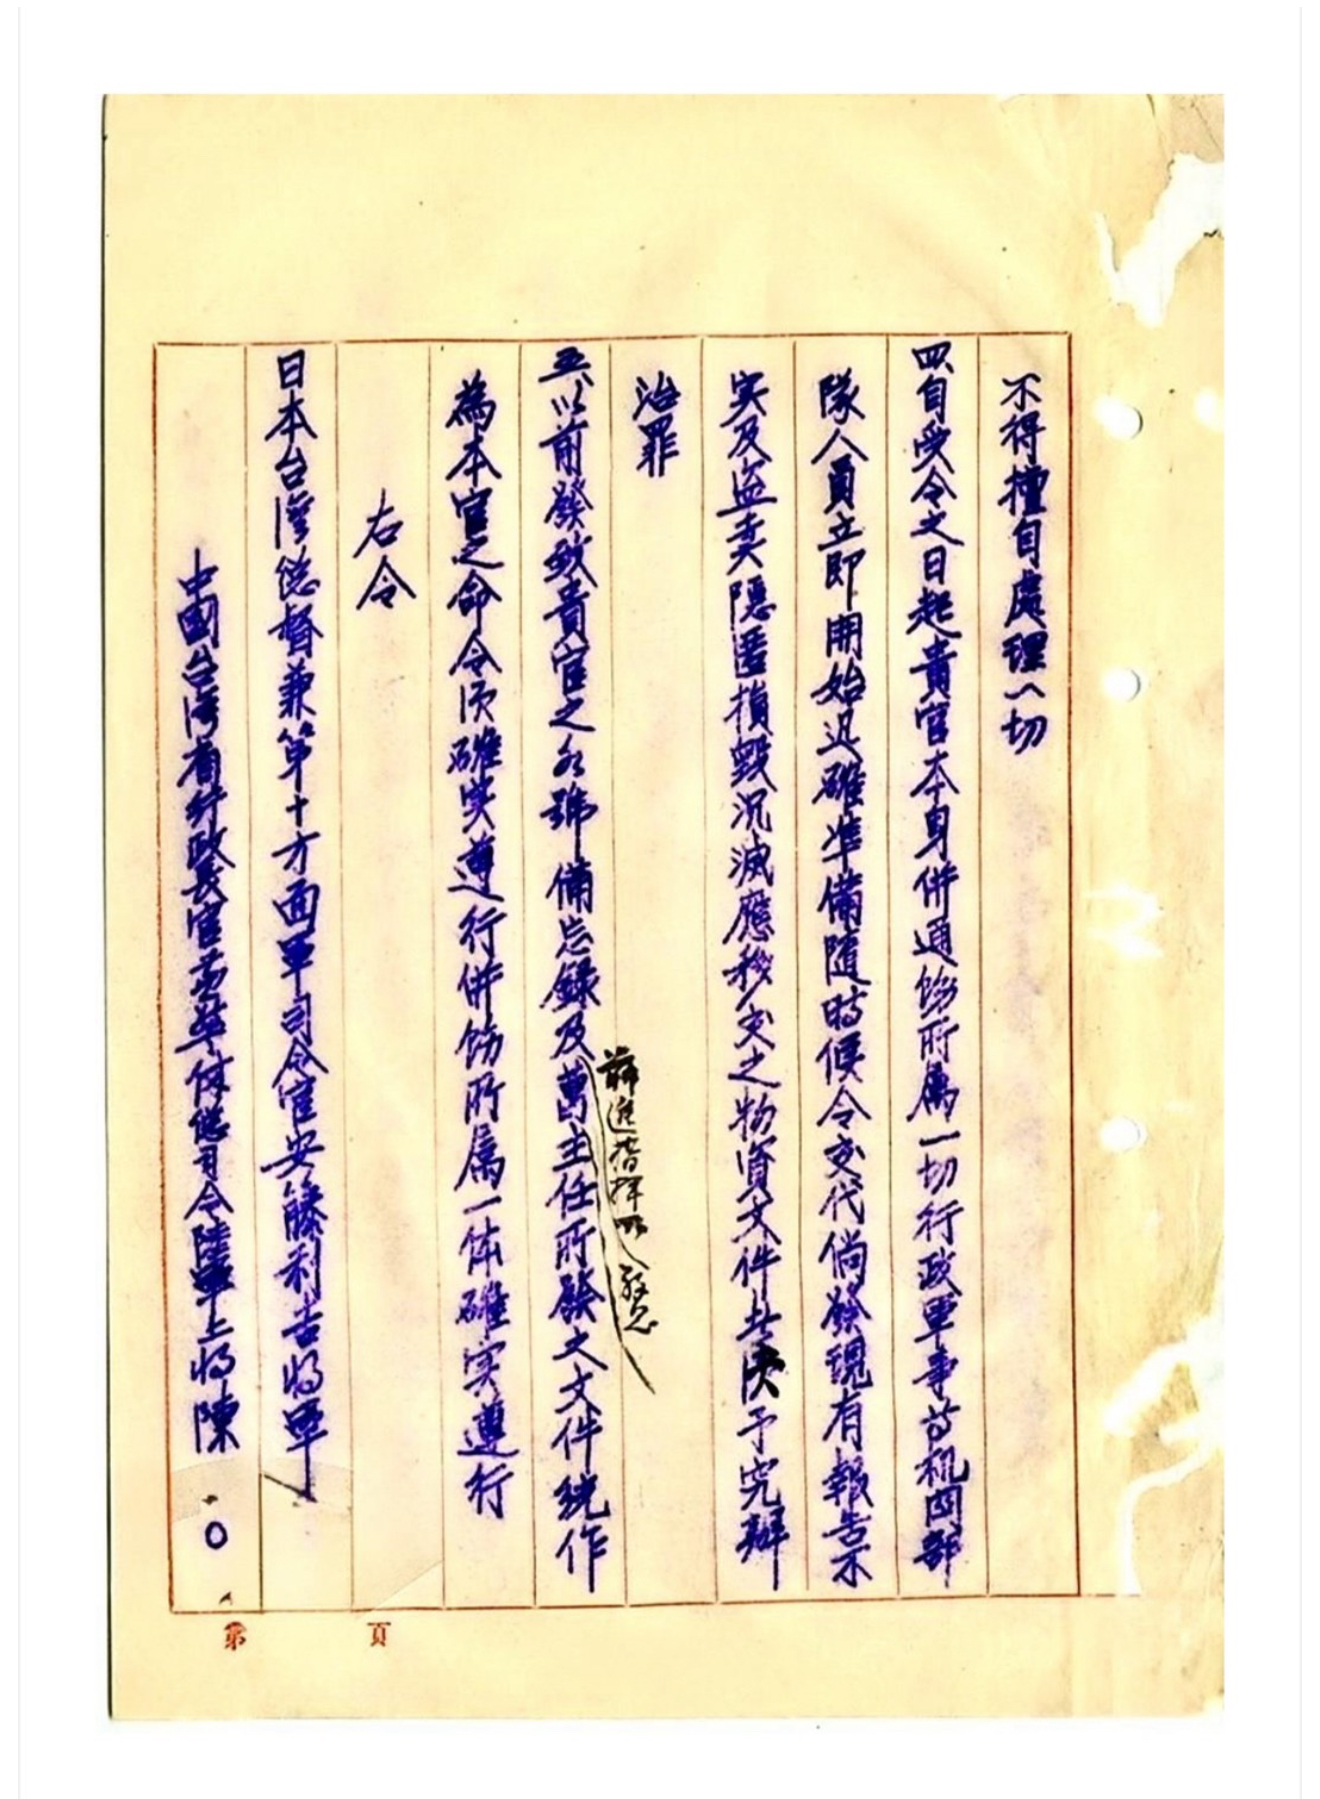 不得擅自處理一切
四、自受令之日起貴官本身併通飭所属一切行政軍事等机関部
隊人員立即開始迅確準備隨時候令交代倘發現有報告不
实及盗卖隱匿損毀沉滅應移交之物資文件者决予究辦
治罪
五、以前發致貴官之各號備忘錄及葛主任所發之文件統作
前進指揮所
為本官之命令須確实遵行併飭所属一体確实遵行
右令
日本台灣總督兼第十方面軍司令官安籐利吉將軍
中國台灣省行政長官兼警备總司令陸軍上將陳
〇
第 頁